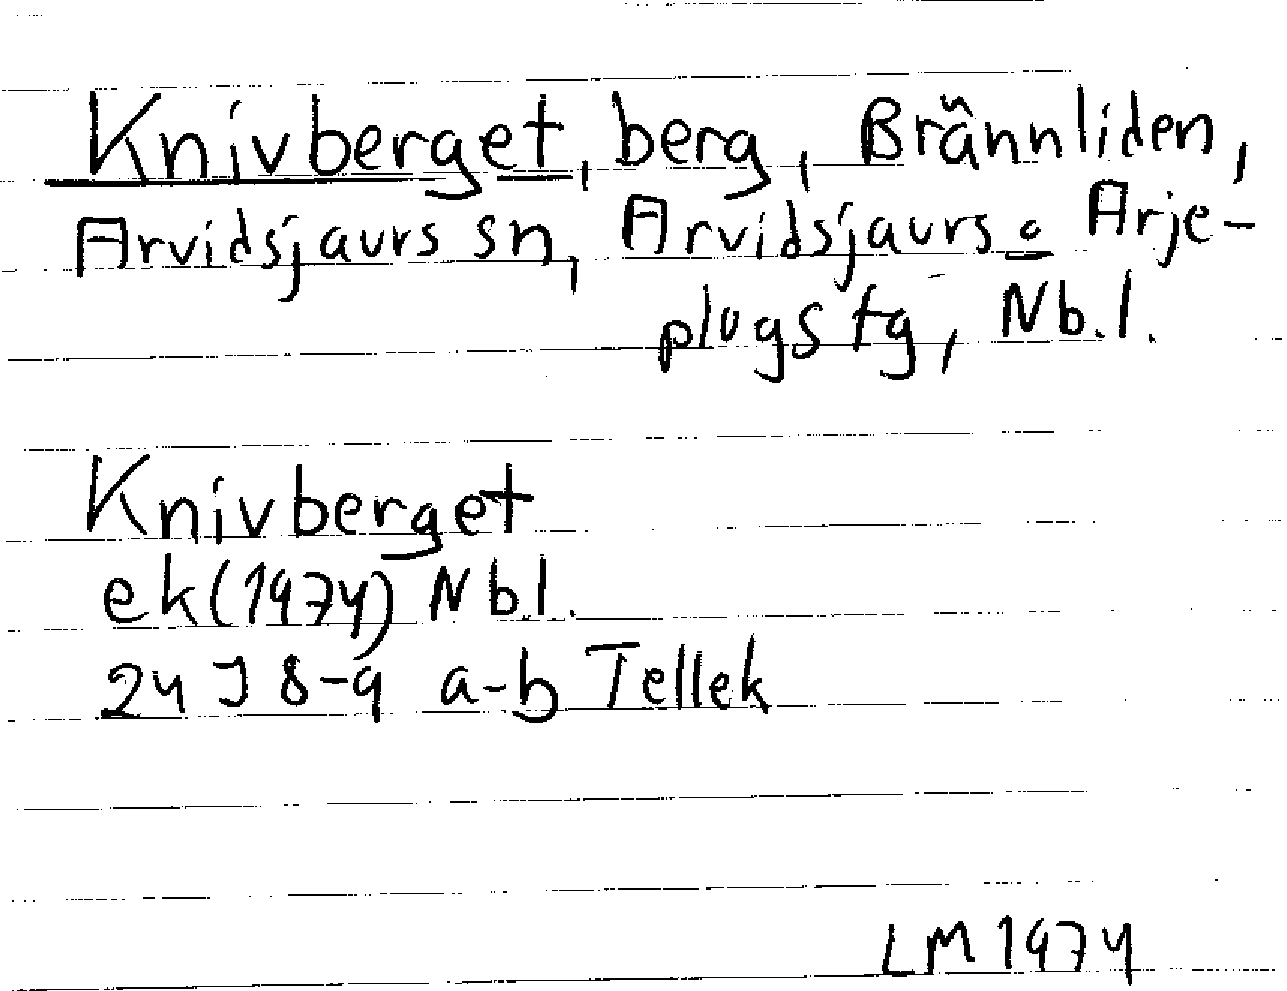 Knivberget, berg, Brännliden,
Arvidsjaurs sn, Arvidsjaurs o Arje-
plogs tg, Nb.l.
Knivberget
ek(1974) Nb.l.
24 J 8-9 a-b Tellek
LM 1974